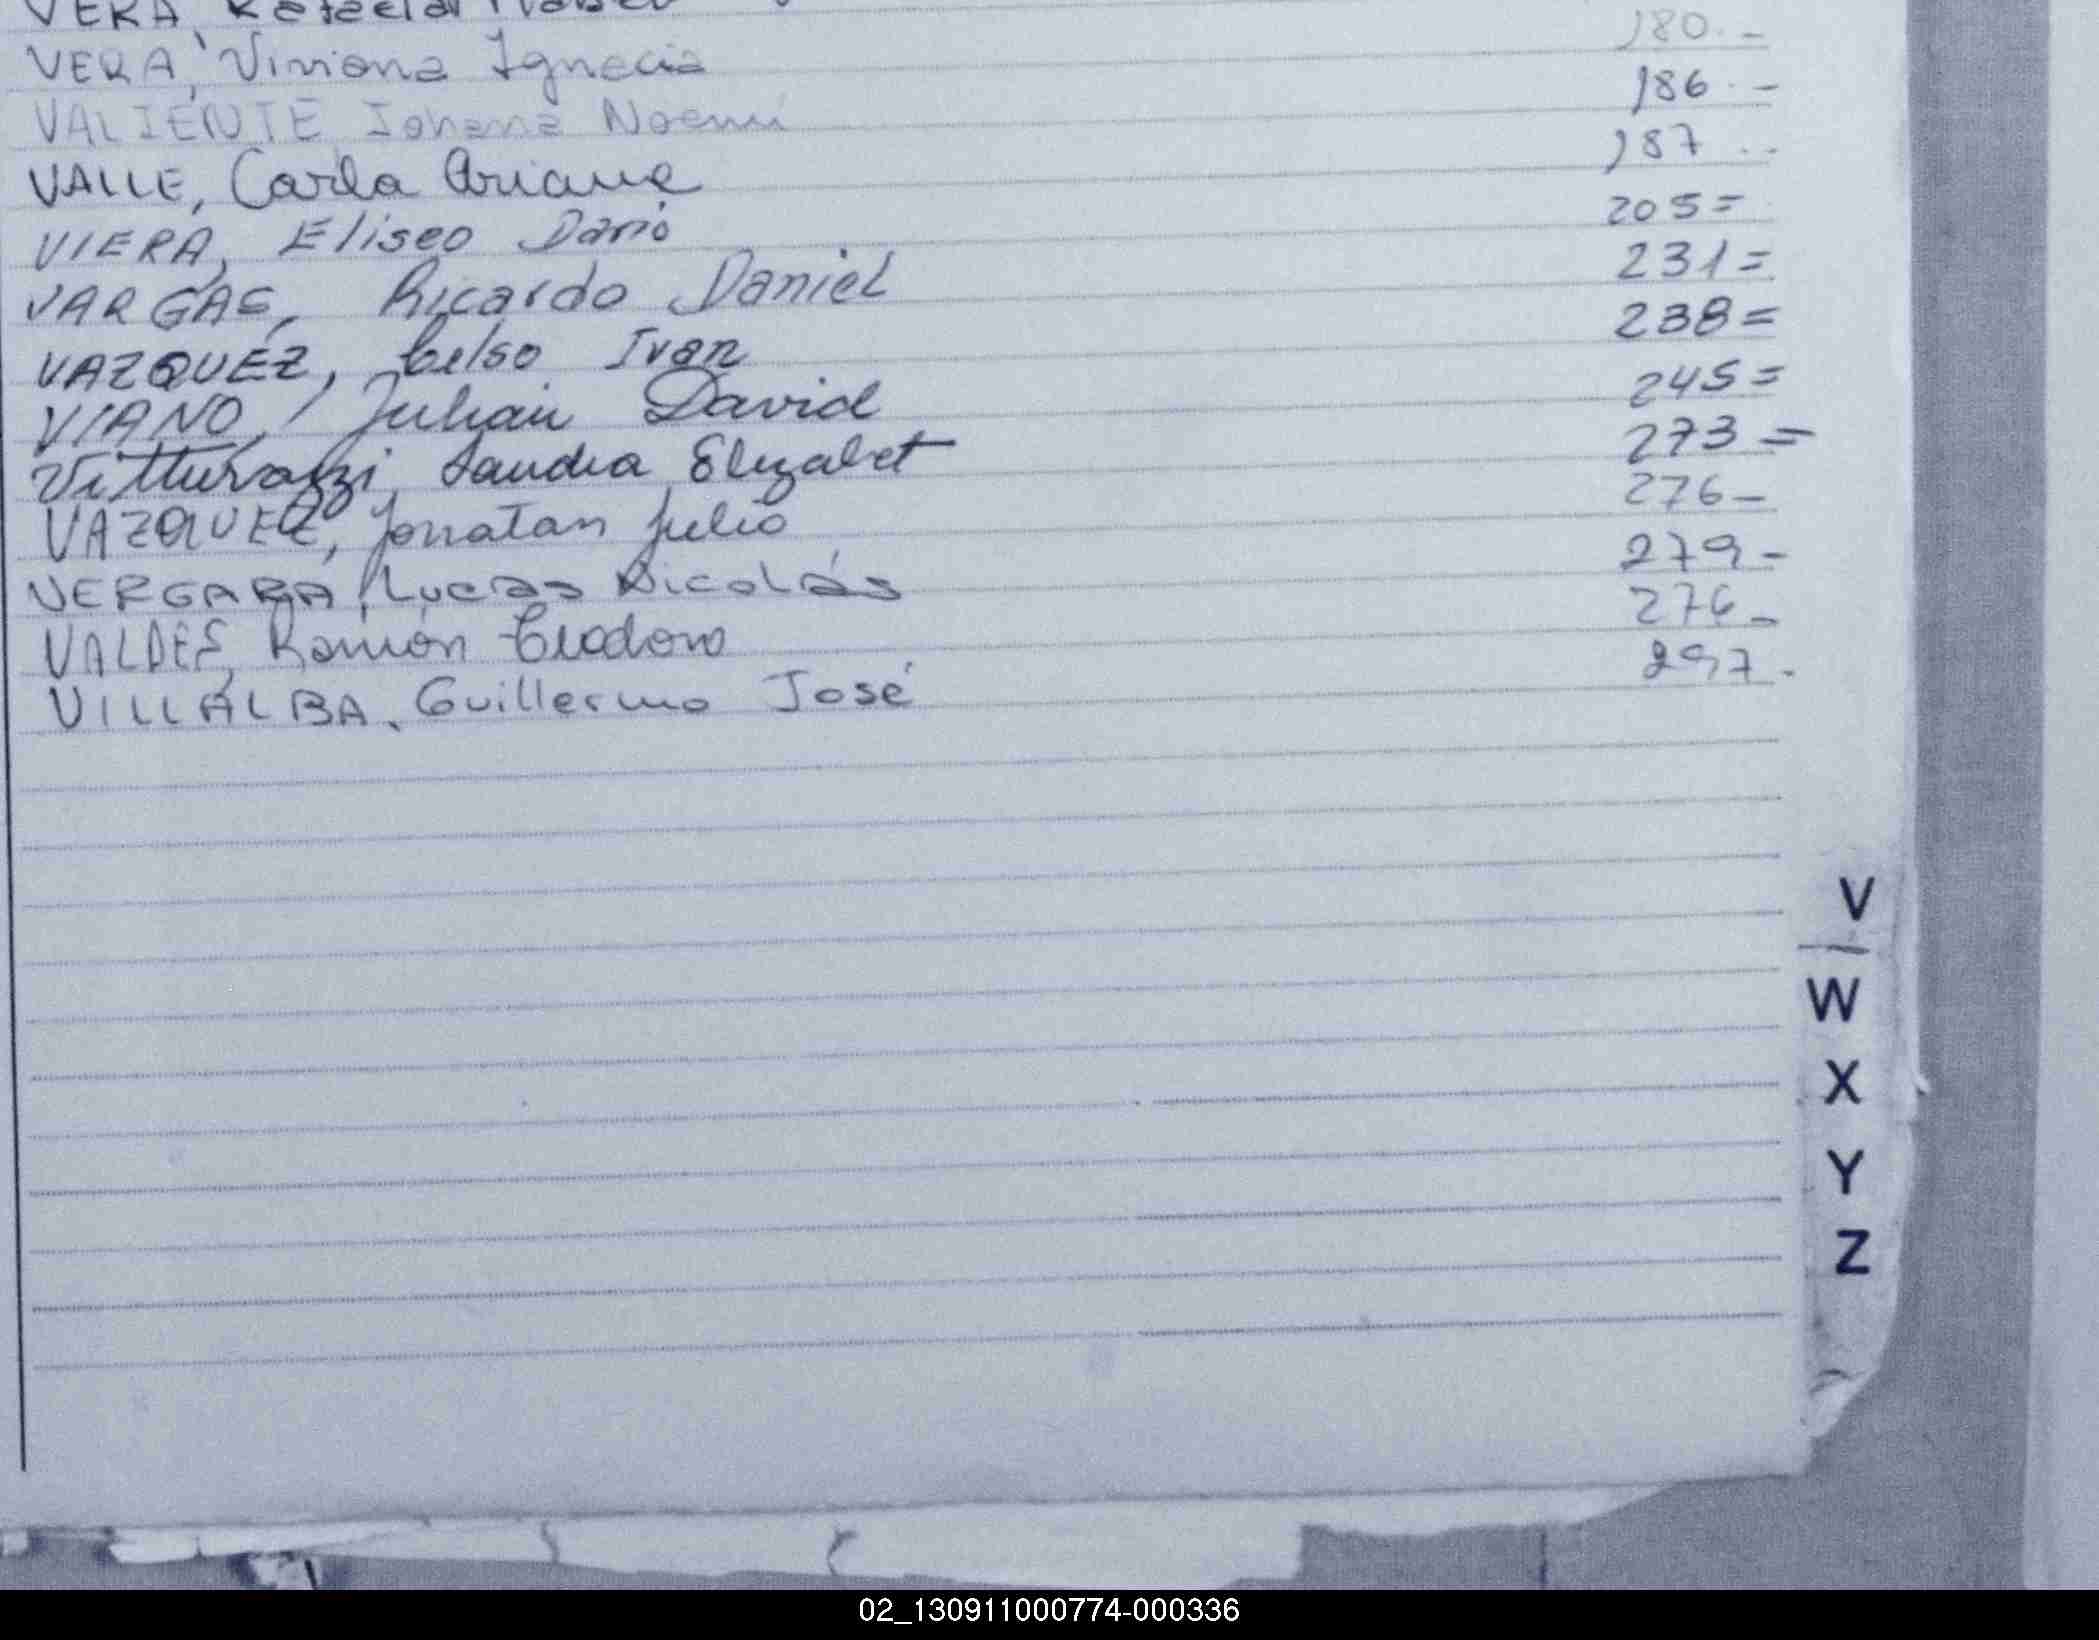 VERA
VERA, Viviana Ignacia 180.-
VALIENTE Iohana Noemi 186.-
VALLE, Carla Ariana 187..
VIERA, Eliseo Darío 205=
VARGAS, Ricardo Daniel 231=
VAZQUEZ, Celso Ivan 238=
VIANO, Julian David 245=
Vitturazzi, Sandra Elizabet 273=
VAZQUEZ, Jonatan Julio 276-
VERGARA, Lucas Nicolás 279-
VALDES, Ramón Teodoro 276-
VILLALBA, Guillermo José 297-
V
W
X
Y
Z
02_130911000774-000336